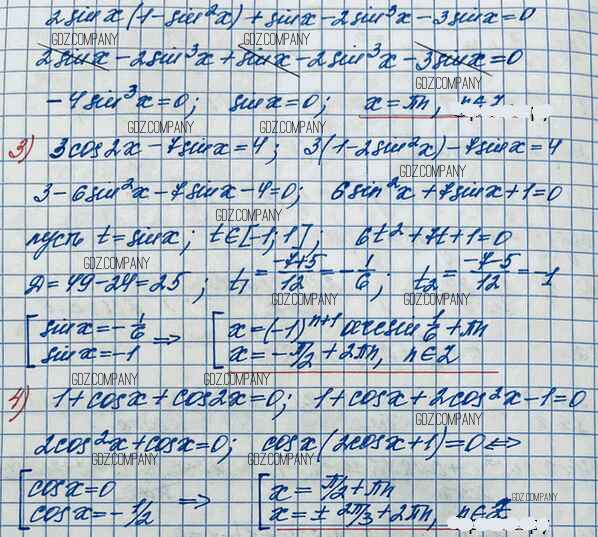 2sinx(1-sin²x)+sinx-2sin³x-3sinx=0
GDZ.COMPANY GDZ.COMPANY
2sinx-2sin³x+sinx-2sin³x-3sinx=0
GDZ.COMPANY
-4sin³x=0; sinx=0; x=πn, n∈Z
GDZ.COMPANY GDZ.COMPANY
3) 3cos2x-7sinx=4; 3(1-2sin²x)-7sinx=4
GDZ.COMPANY
3-6sin²x-7sinx-4=0; 6sin²x+7sinx+1=0
GDZ.COMPANY
пусть t=sinx; t∈[-1;1]; 6t²+7t+1=0
GDZ.COMPANY GDZ.COMPANY
D=49-24=25; t₁=(-7+5)/12=-1/6; t₂=(-7-5)/12=-1
GDZ.COMPANY GDZ.COMPANY
[sinx=-1/6 => [x=(-1)ⁿ⁺¹arcsin 1/6+πn
sinx=-1 x=-π/2+2πn, n∈Z
GDZ.COMPANY GDZ.COMPANY
4) 1+cosx+cos2x=0; 1+cosx+2cos²x-1=0
GDZ.COMPANY
2cos²x+cosx=0; cosx(2cosx+1)=0 <=>
GDZ.COMPANY GDZ.COMPANY
[cosx=0 => [x=π/2+πn
GDZ.COMPANY
cosx=-1/2 x=±2π/3+2πn, n∈Z
GDZ.COMPANY GDZ.COMPANY